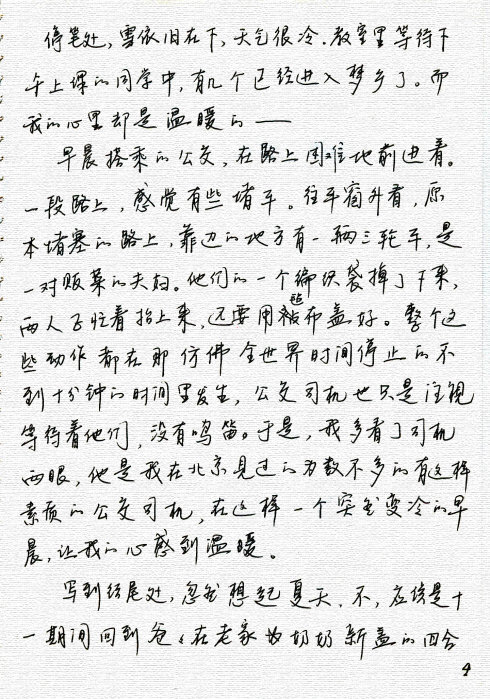 停笔处，雪依旧在下，天气很冷.教室里等待下
午上课的同学中，有几个已经进入梦乡了。而
我的心里却是温暖的——
早晨搭乘的公交，在路上困难地前进着。
一段路上，感觉有些堵车。往车窗外看，原
本堵塞的路上，靠边的地方有一辆三轮车，是
一对贩菜的夫妇。他们的一个编织袋掉了下来，
两人正忙着抬上来，还要用毡布盖好。整个这
些动作都在那仿佛全世界时间停止的不
到十分钟的时间里发生，公交司机也只是注视
等待着他们，没有鸣笛。于是，我多看了司机
两眼，他是我在北京见过的为数不多的有这样
素质的公交司机，在这样一个突然变冷的早
晨，让我的心感到温暖。
写到结尾处，忽然想起夏天、不，应该是十
一期间回到爸爸在老家为奶奶新盖的四合
4